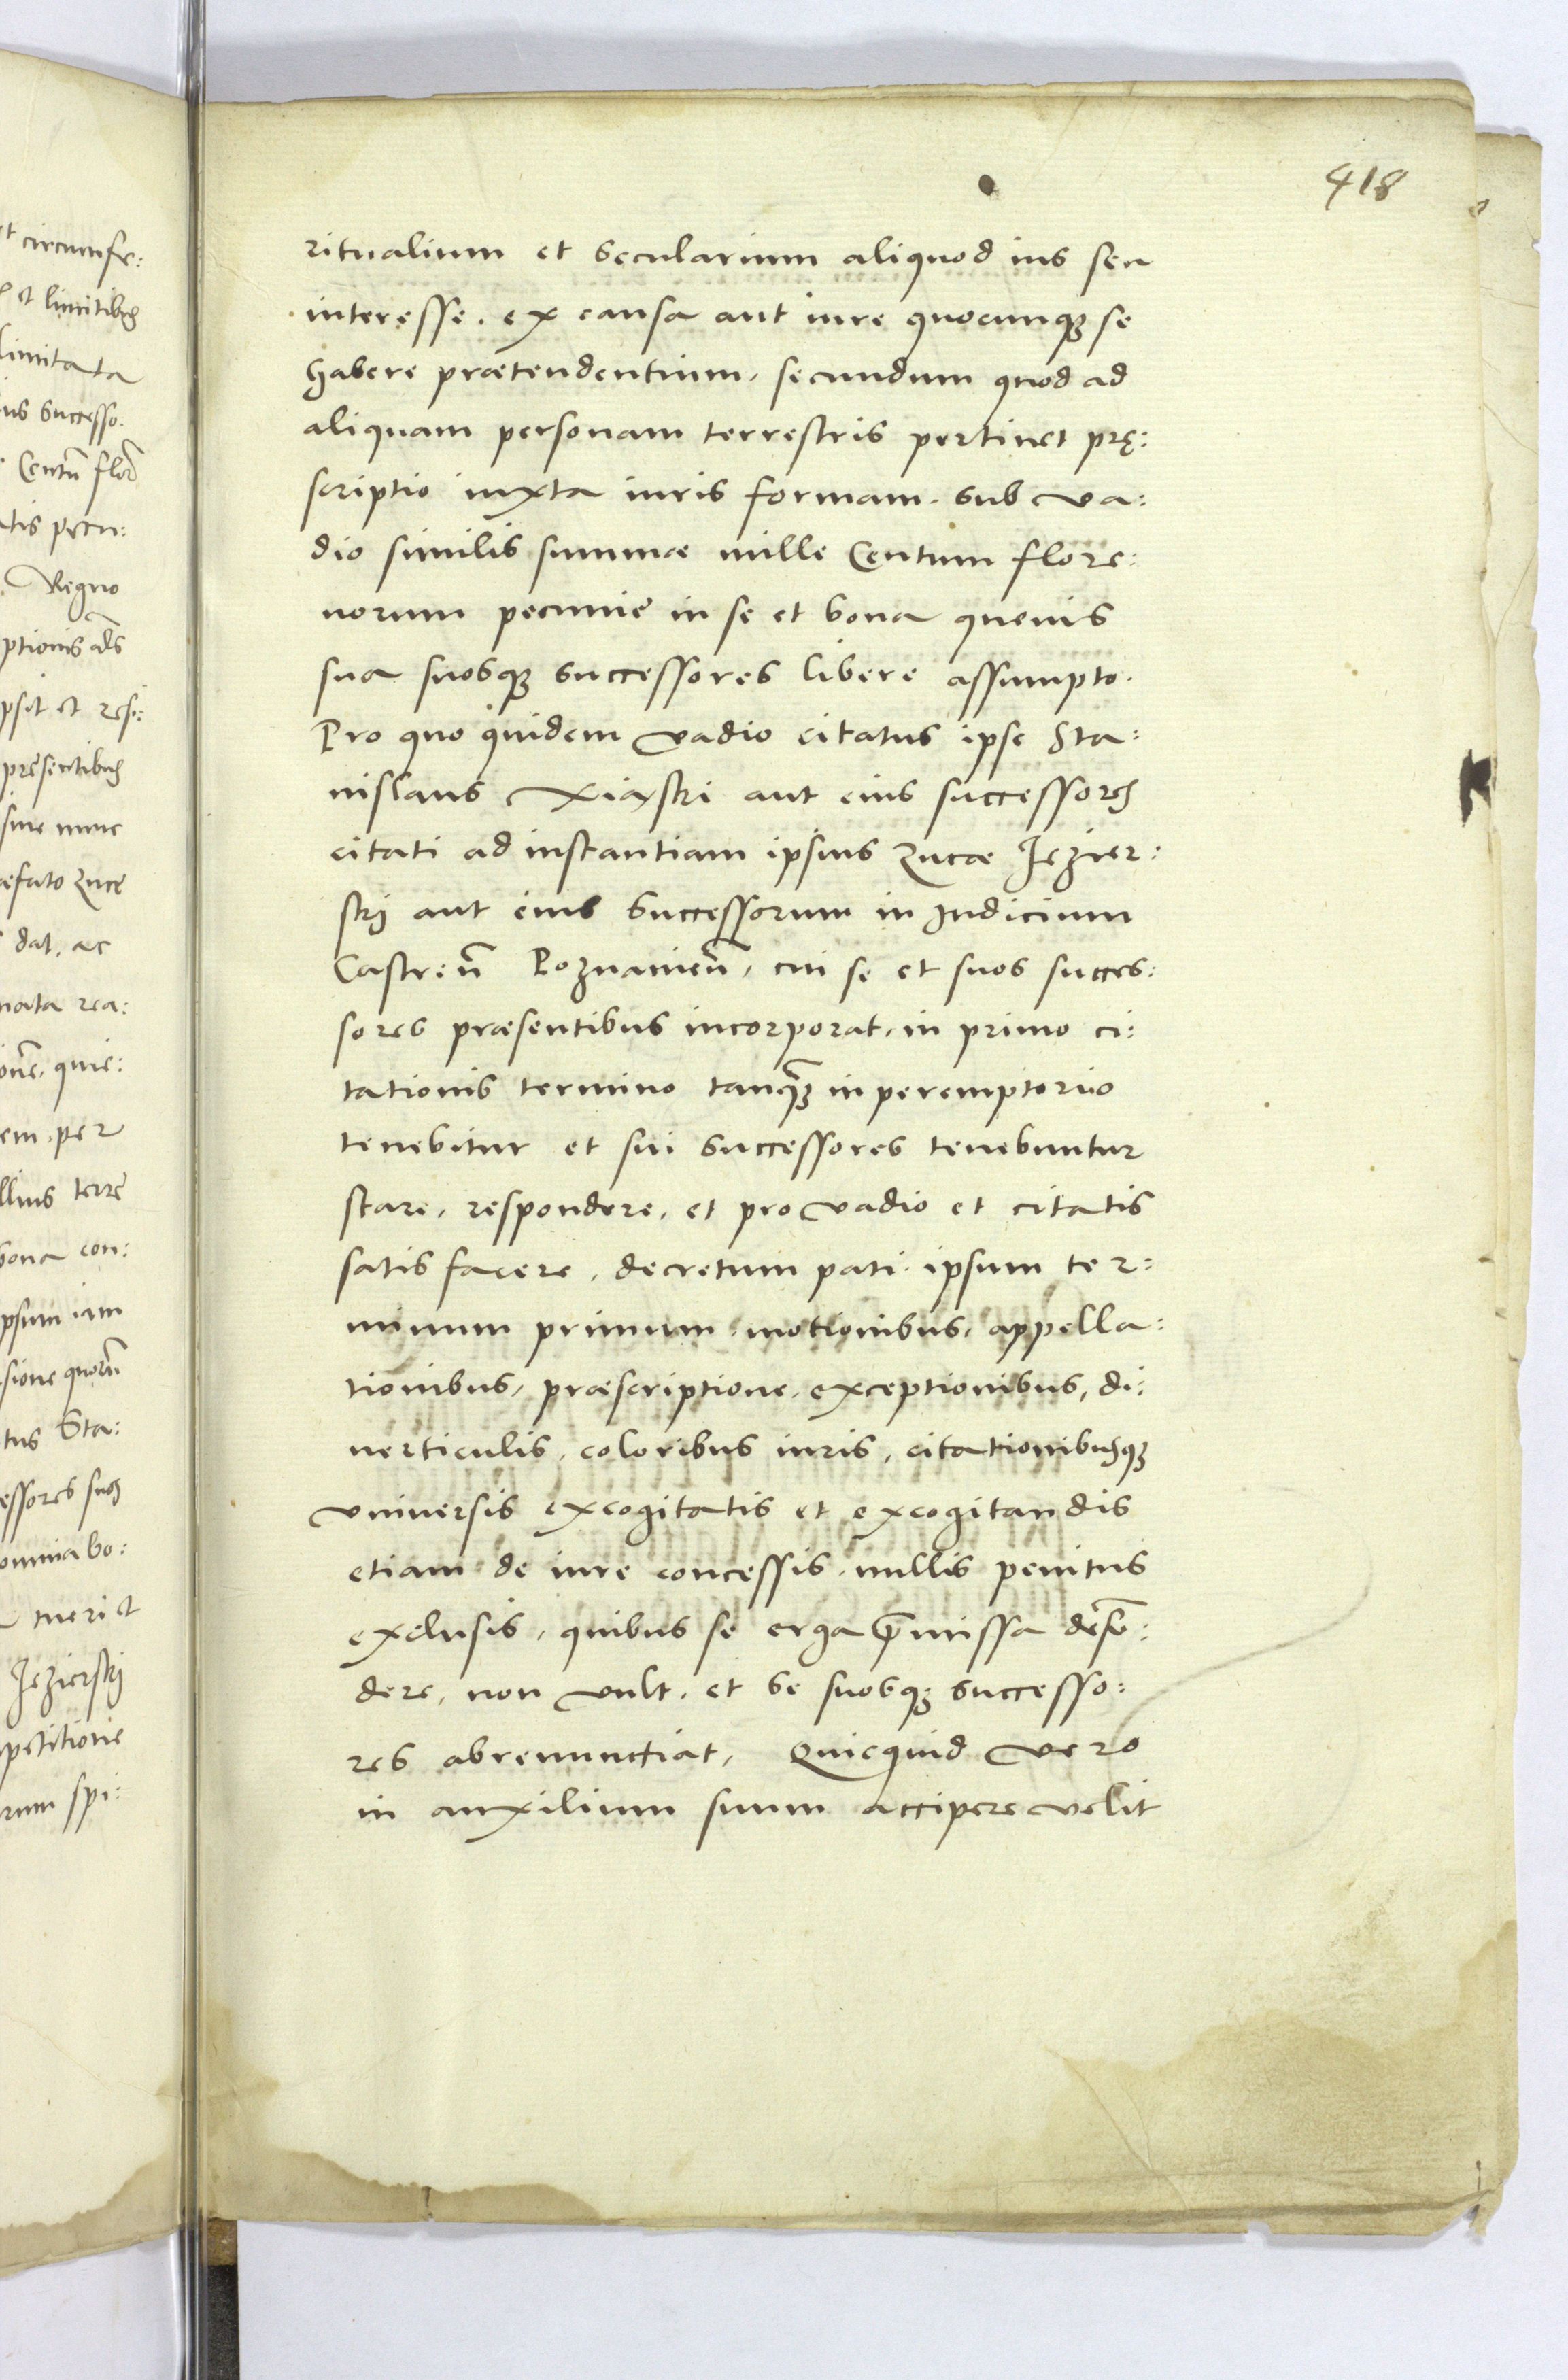 418
ritualium et secularium aliquod ius seu
interesse. ex causa aut iure quocunq[ue] se
habere prætendentium, secundum quod ad
aliquam personam terrestris pertinet prę:
scriptio iuxta iuris formam. sub va:
dio similis summæ mille Centum flore:
norum pecunie in se et bona quevis
sua suosq[ue] successores libere assumpto.
Pro quo quidem vadio citatus ipse Sta:
nislaus Xiąski aut eius successores
citati ad instantiam ipsius Zucæ Jezier:
ski aut eius successorum in Judicium
Castren̄ Poznanien̄, cui se et suos succes:
sores præsentibus incorporat, in primo ci:
tationis termino tanq̃ in peremptorio
tenebitur et sui successores tenebuntur
stare, respondere, et pro vadio et citatis
satis facere, decretum pati. ipsum ter:
minum primum motionibus, appella:
tionibus, præscriptione, exceptionibus, di:
verticulis, coloribus iuris, citationibusq[ue]
universis excogitatis et excogitandis
etiam de iure concessis, nullis penitus
exclusis, quibus se erga p̃missa defe͂:
dere, non vult, et se suosq[ue] successo:
res abrenunctiat, Quicquid vero
in auxilium suum accipere velit
et circumfe:
et limitibus
limitata
ius successo.
Centū flor̃
Regno
psit et resi:
presentibus
sive nunc
dat, ac
nata rea:
quie:
em, per
llius terre
bona con:
ipsum iam
sione quorū
tus Sta:
essores suos
omnia bo:
tueri et
Jezierski
petitione
rum spi: